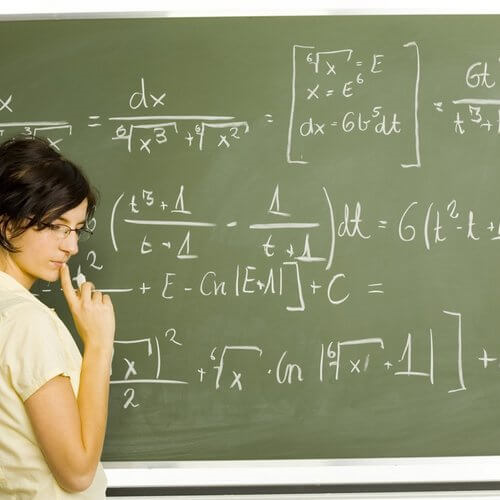 x / ∛x = dx / (⁶√x³ + ⁶√x²) = [ ⁶√x = E
x = E⁶
dx = 6t⁵dt ] = 6t / t³+
( (t³+1)/(t+1) - 1/(t+1) ) dt = 6(t²-t+
2 + E - Cn|E+1| ] + C =
√x)² / 2 + ⁶√x · Cn |⁶√x + 1| ] +